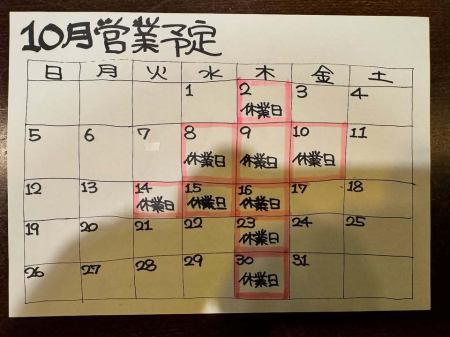 10月営業予定
日 月 火 水 木 金 土
1 2 3 4
休業日
5 6 7 8 9 10 11
休業日 休業日 休業日
12 13 14 15 16 17 18
休業日 休業日 休業日
19 20 21 22 23 24 25
休業日
26 27 28 29 30 31
休業日